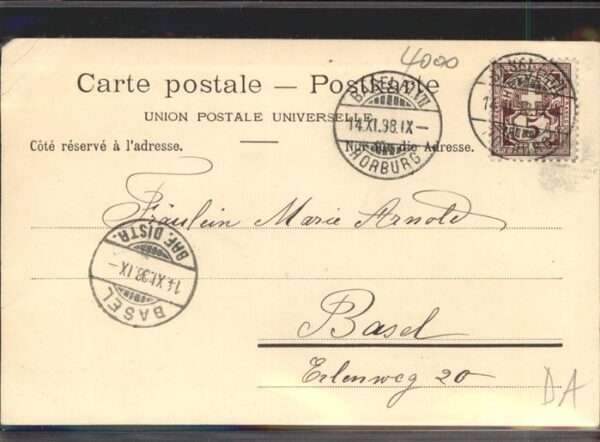 4000
Carte postale — Postkarte
UNION POSTALE UNIVERSELLE
Côté réservé à l'adresse.
Nur für die Adresse.
BASEL VII
14.XI.98.IX–
HORBURG
5
Fräulein Marie Arnold
BASEL
14.XI.98.IX–
BRF. DISTR.
Basel
Erlenweg 20
DA